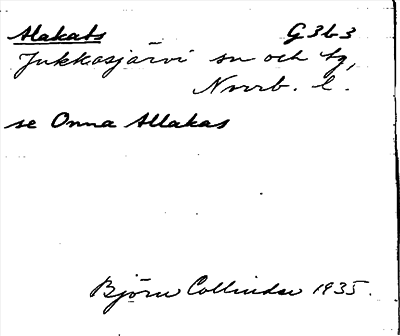 Alakats G3b3
Jukkasjärvi sn och tg,
Norrb. l.
se Onna Allakas
Björn Collinder 1935.